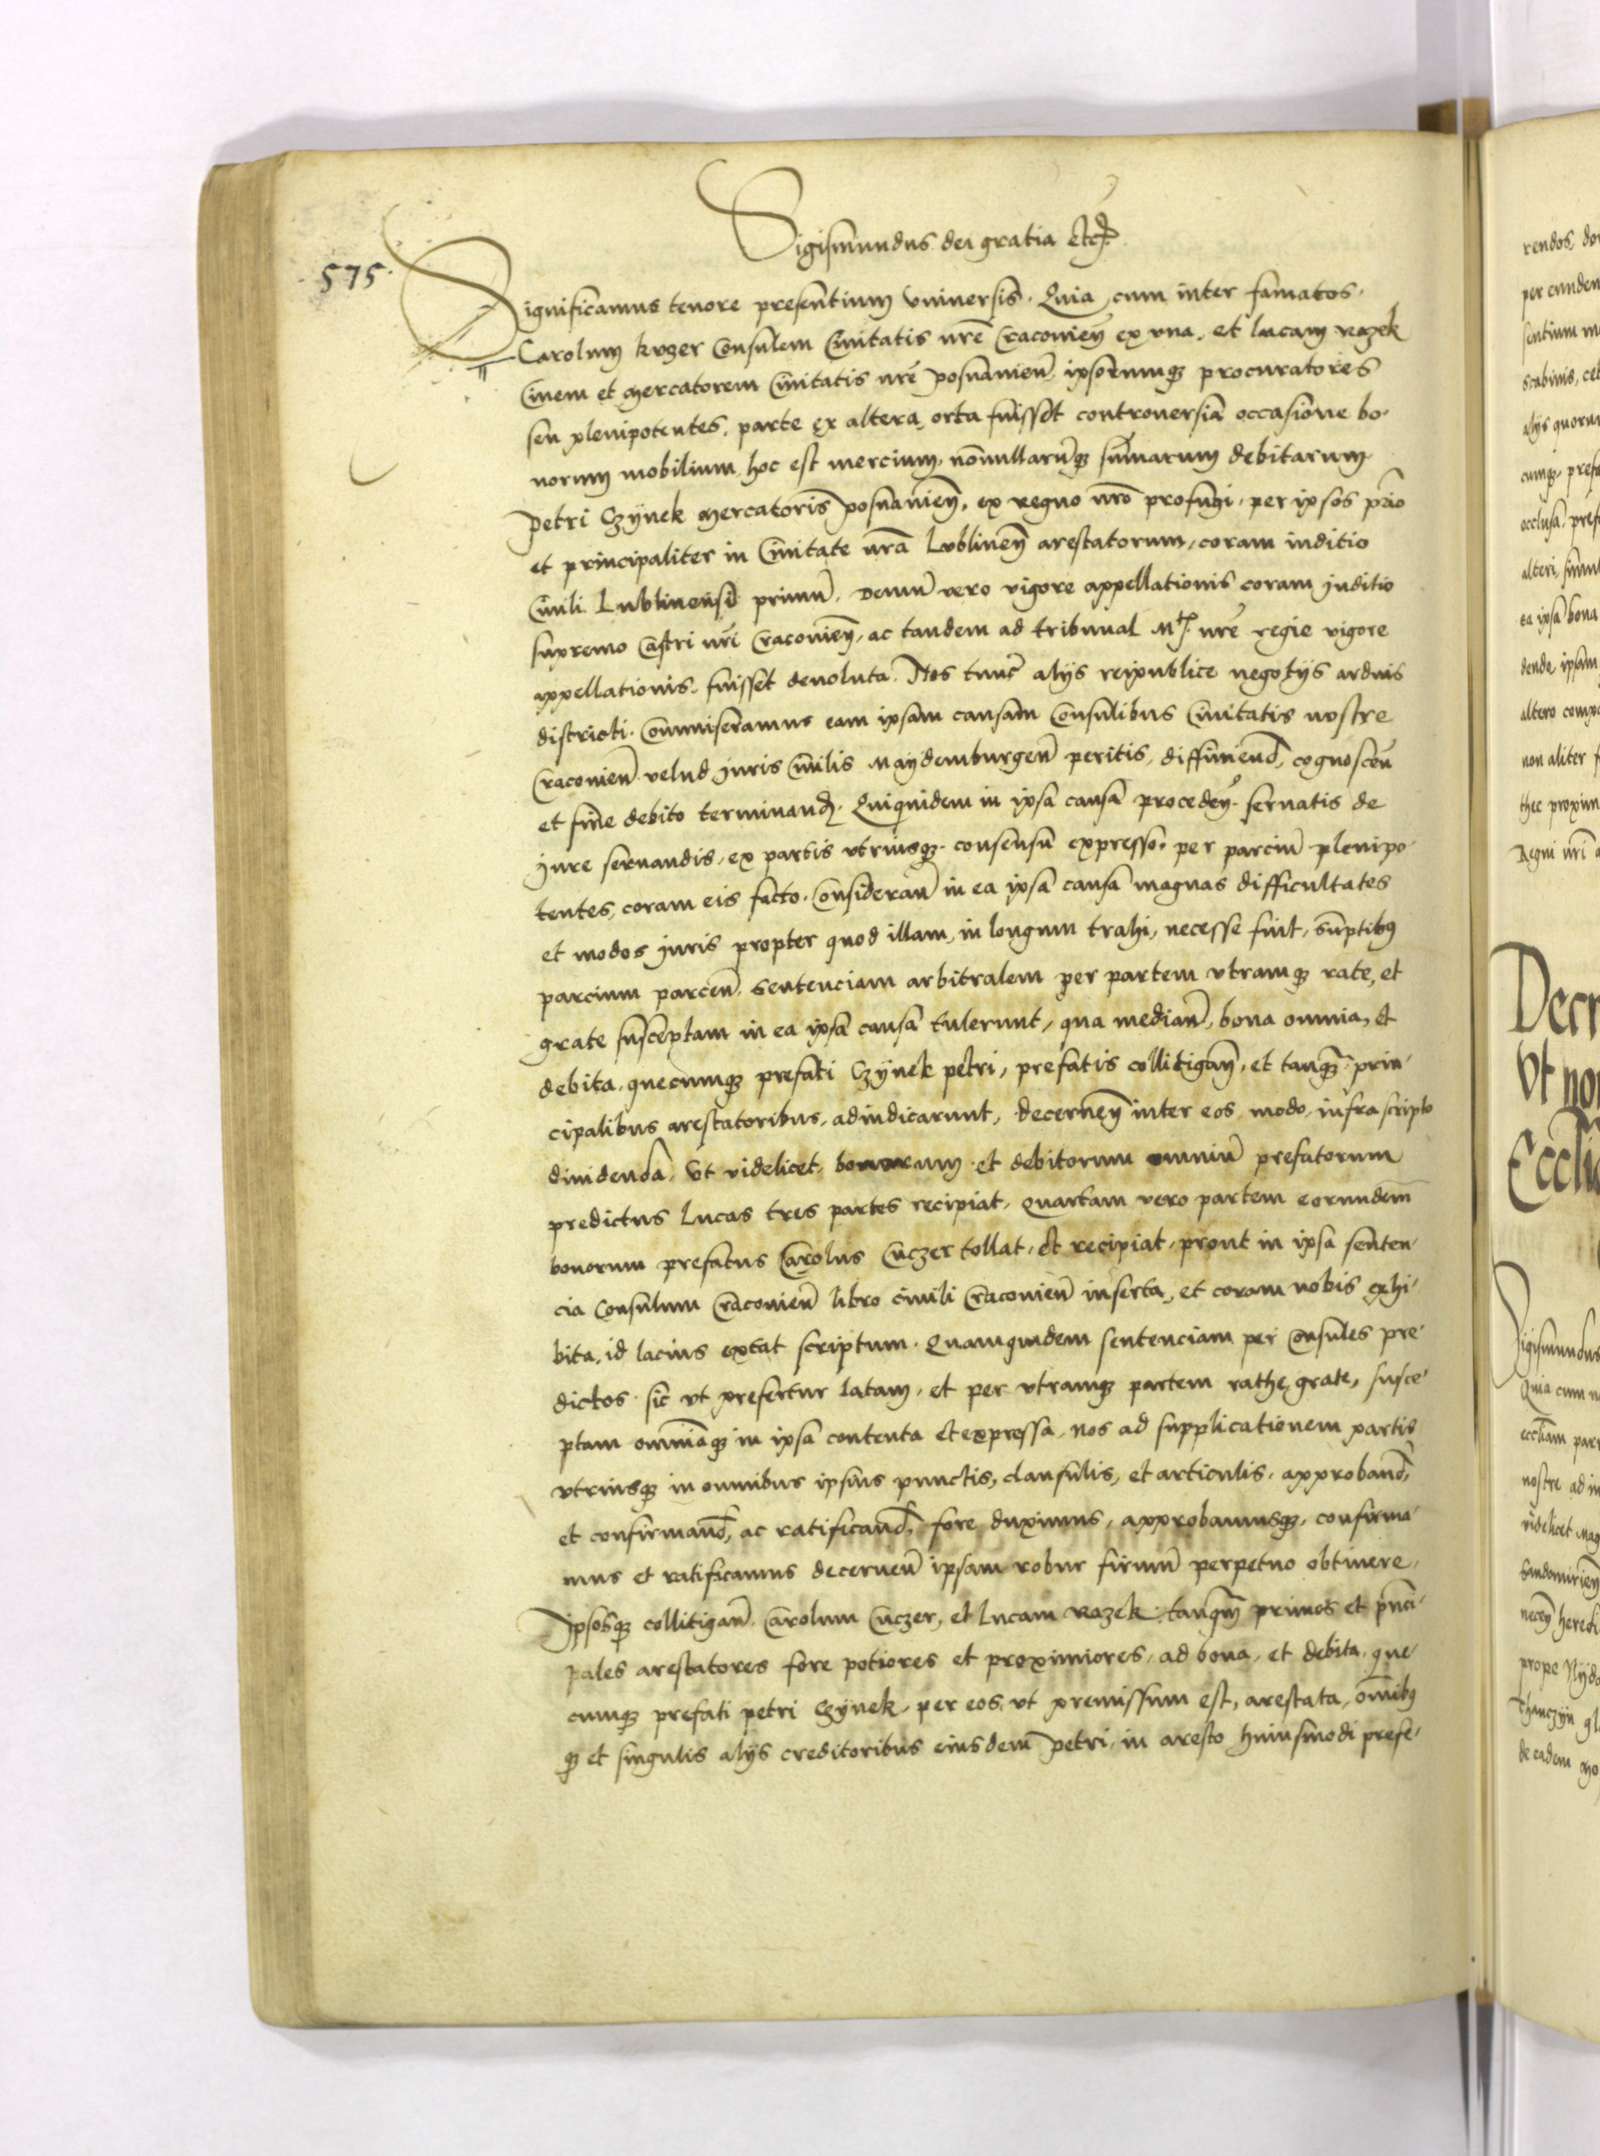 Sigismundus dei gratia etc.
575.
Significamus tenore presentium vniuersis. Quia cum inter famatos.
Carolum kuczer Consulem Ciuitatis nrē Cracouień ex vna. et lucam
Ciuem et Mercatorem Ciuitatis nrē Posnanień. ipsorumq₃ procuratores
seu plenipotentes. parte ex altera, orta fuisset controuersia occasione bo-
norum mobilium, hoc est mercium, nonnullarūq₃ summarum debitarum
Petri Czÿnek Mercatoris Posnanień, ex regno nrō profugi, per ipsos
et principaliter in Ciuitate nrā Lublineń arestatorum, coram iuditio
Ciuili Lublinensi primū. Demū vero vigore appellationis coram Juditio
supremo Castri nrī Cracouień, ac tandem ad tribunal Mtis. nrē regie vigore
appellationis, fuisset deuoluta. Nos tunc alÿs reipublice negotÿs arduis
districti. Commiseramus eam ipsam causam Consulibus Ciuitatis nostre
Cracouień velud Juris Ciuilis Maÿdemburgeń peritis, diffiniend, cognosceń
et fine debito terminand. Quiquidem in ipsa causa procedeń. seruatis de
Jure seruandis, ex partis vtriusq₃. consensu expresso. per parciū plenipo-
tentes, coram eis facto. Considerań in ea ipsa causa magnas difficultates
et modos Juris propter quod illam, in longum trahi, necesse fuit, sūptibus
parcium parceń. Sentenciam arbitralem per partem vtramq₃ rate, et
grate susceptam in ea ipsa causa tulerunt, qua mediań, bona omnia, et
debita, quecumq₃ prefati Czÿnek petri, prefatis collitigań, et tanq₃ prin-
cipalibus arestatoribus, adiudicarunt, decerneń inter eos, modo, infrascripto
diuidenda, Vt videlicet, bonorum et debitorum omniū prefatorum
predictus Lucas tres partes recipiat, quartam vero partem eorundem
bonorum prefatus Carolus Cuczer tollat, et recipiat, prout in ipsa senten-
cia Consulum Cracouień libro ciuili Cracouień inserta, et coram nobis exhi-
bita, id lacius extat scriptum. Quamquidem sentenciam per Consules pre-
dictos sic vt prefertur latam, et per vtramq₃ partem rathe, grate, susce-
ptam omniaq₃ in ipsa contenta et expressa, nos ad supplicationem partis
vtriusq₃ in omnibus ipsius punctis, clausulis, et articulis, approband,
et confirmand, ac ratificand, fore duximus, approbamusq₃, confirma-
mus et ratificamus decerneń ipsam robur firmū perpetuo obtinere,
Ipsosq₃ collitigań Carolum Cuczer, et Lucam tanq₃ primos et prīci-
pales arestatores fore potiores et proximiores, ad bona, et debita, que-
cumq₃ prefati petri Czÿnek, per eos, vt premissum est, arestata, omībus
q₃ et singulis alÿs creditoribus eiusdem Petri, in aresto huiusmodi prefe-